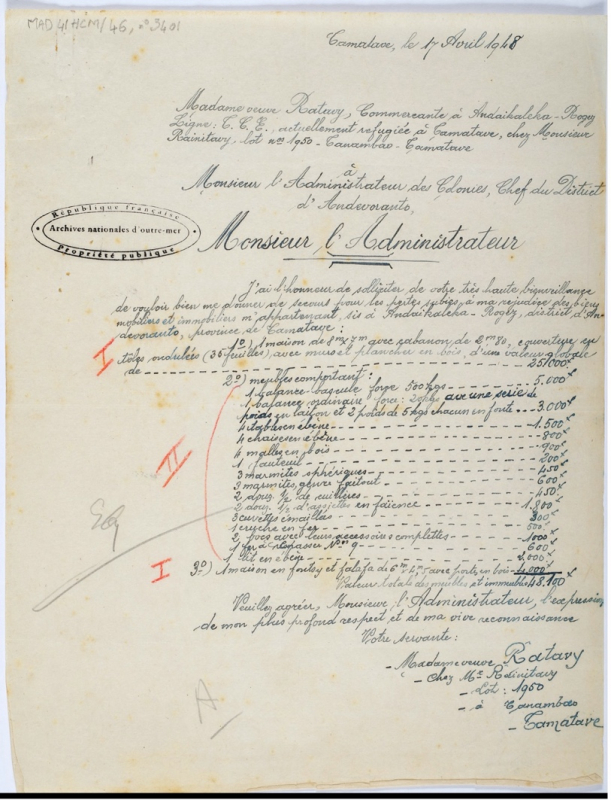 MAD 41HCM/46, n° 3401
Tamatave, le 17 Avril 1948
Madame veuve Ratavy, Commerçante à Andaikaleka - Rogez
Ligne: T. C. E., actuellement refugiée à Tamatave, chez Monsieur
Rainitavy, lot n° 1950 - Tanambao - Tamatave
à
Monsieur l'Administrateur des Colonies, Chef du District
d'Andevoranto,
République française
Archives nationales d'outre-mer
Propriété publique
Monsieur l'Administrateur
J'ai l'honneur de solliciter de votre très haute bienveillance
de vouloir bien me donner de secours pour les pertes subies, à ma des biens
mobiliers et immobiliers m'appartenant, sis à Andaikaleka - Rogez, district d'An-
devoranto, province de Tamatave:
I
1°) 1 maison de 8m x 7m avec cabanon de 2m 80, couverture en
tôles ondulées (35 feuilles), avec murs et plancher en bois, d'une valeur globale
de 25.000
2°) meubles comportant:
1 balance-bascule force 500 kgs 5.000
1 balance ordinaire force: 20kgs avec une série de
poids en laiton et 2 poids de 5 kgs chacun en fonte 3.000
II
4 tables en ébène 1.500
4 chaises en ébène 800
4 malles en bois 900
1 fauteuil 200
3 marmites sphériques 450
3 marmites, genre faitout 600
2 douz. ½ de cuillères 450
2 douz. ½ d'assiettes en faïence 1.800
3 cuvettes émaillées 300
1 cruche en fer 500
2 avec leurs accessoires complettes 1000
1 fer à repasser N° 9 600
1 lit en ébène 2.000
I
3°) 1 maison en fontsy et falafa de 6m avec porte en bois 4.000
Valeur totale des meubles et immeubles 48.100
Veuillez agréer, Monsieur l'Administrateur, l'expression
de mon plus profond respect et de ma vive reconnaissance
Votre servante:
- Madame veuve Ratavy
- Chez Mr Rainitavy
- Lot: 1950
- à Tanambao
- Tamatave
A